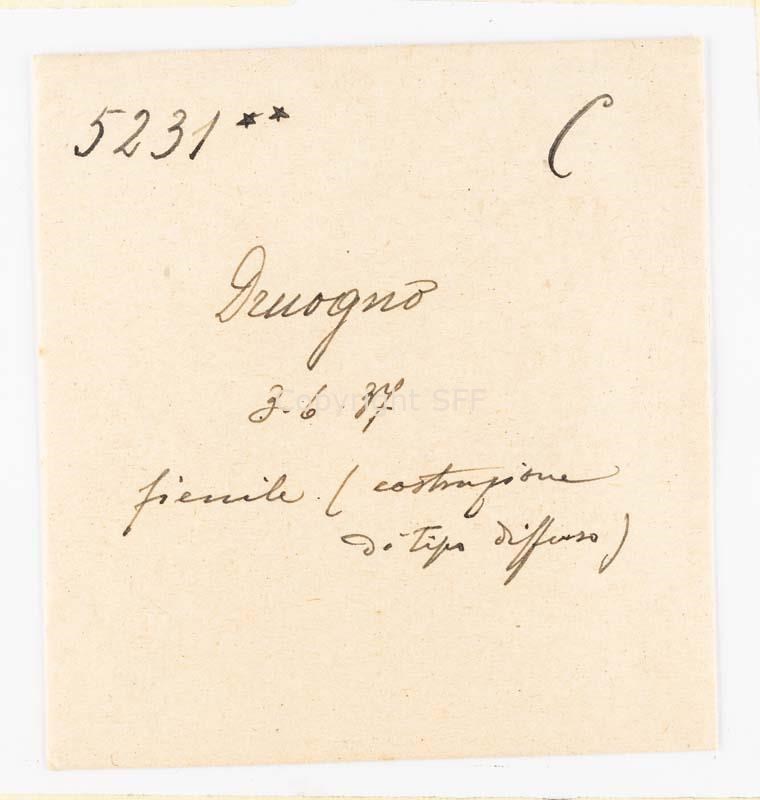 5231** C
Druogno
3.6.37
Copyright SFF
fienile. (costruzione
di tipo diffuso)